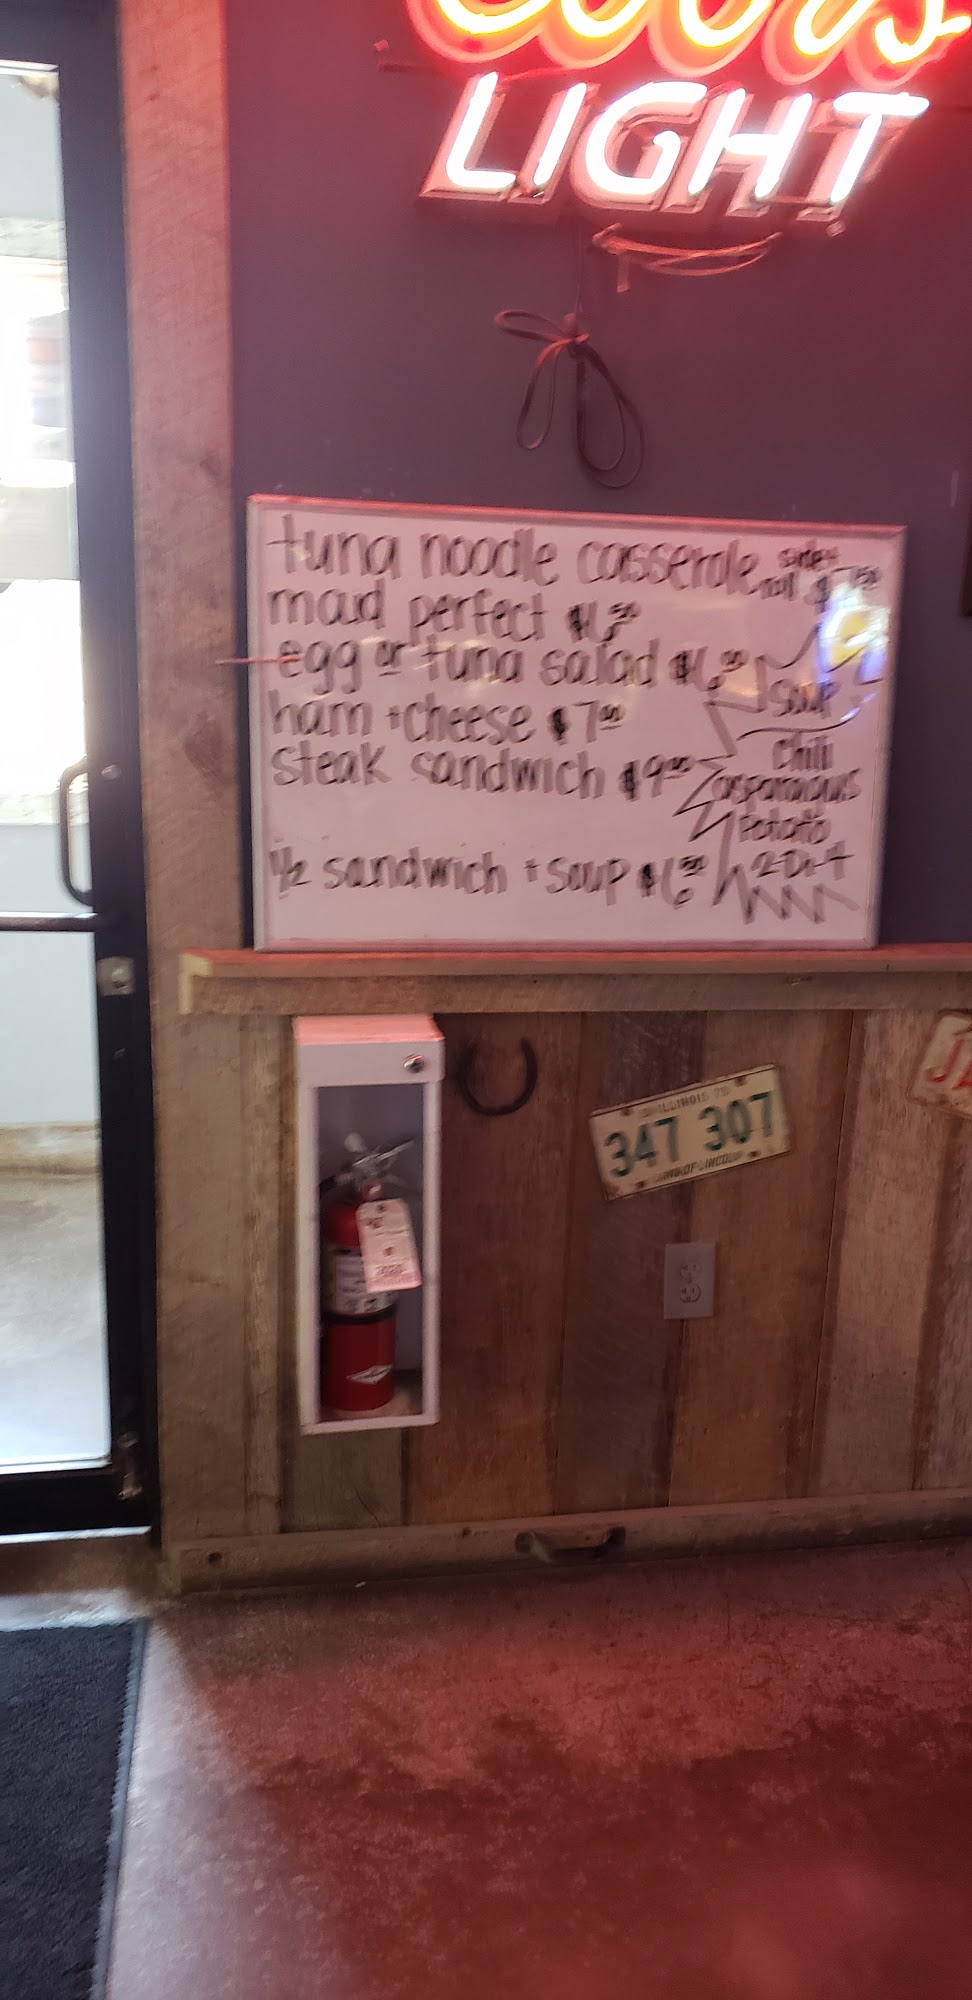 Coors
LIGHT
tuna noodle casserole side + roll
maid perfect $6.50
egg or tuna salad $6.00
ham + cheese $7.00
steak sandwich $9.00
1/2 sandwich + soup $6.50
Soup
Chili
asparagus
Potato
ILLINOIS 75
347 307
LAND OF LINCOLN